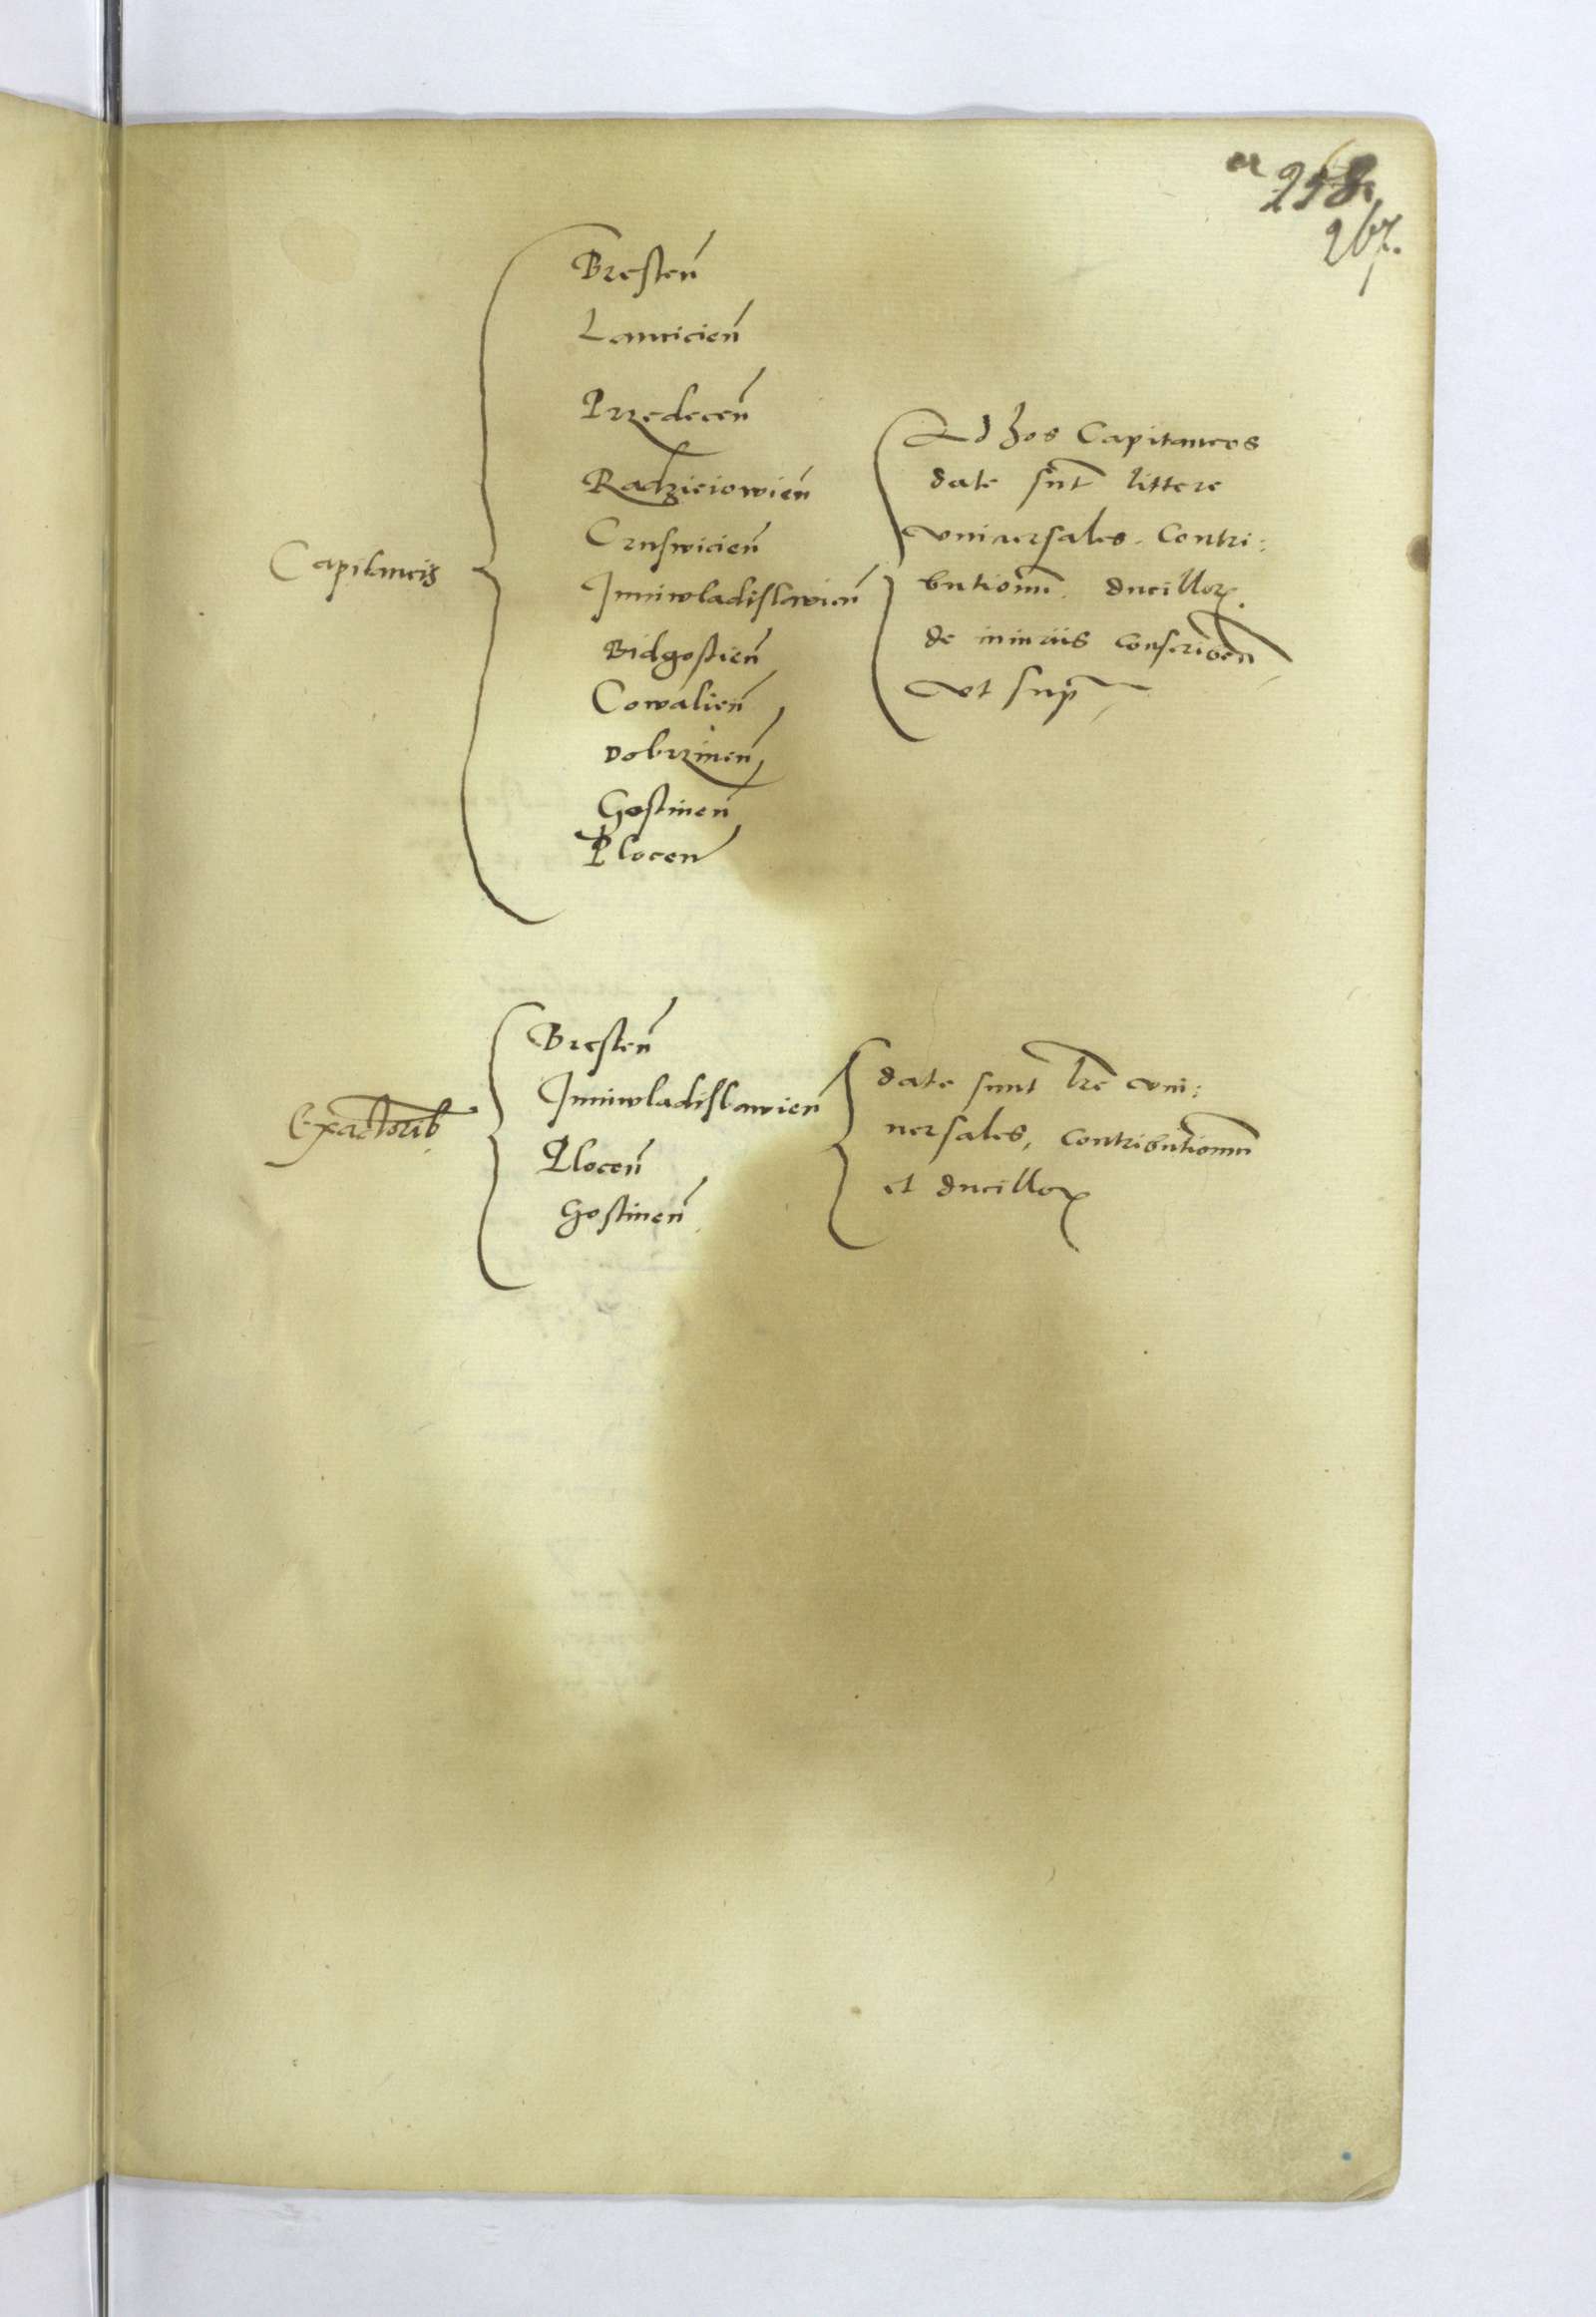 258
267.
Bresten
Lancicien
Przedecen
Radzieiowien
Cruswicien
Capitaneis
Juniwladislavien
Bidgostien
Cowalien
Dobrzinen
Gostinen
Plocen
Ad hos Capitaneos
date sūt littere
vniuersales. Contri:
butionū. ducillorꝝ.
de iniuriis conscriben
vt sup
Exactorib
Bresten
Juniwladislavien
Plocen
Gostinen
date sunt lre vni:
uersales, contributionum
et ducillorꝝ